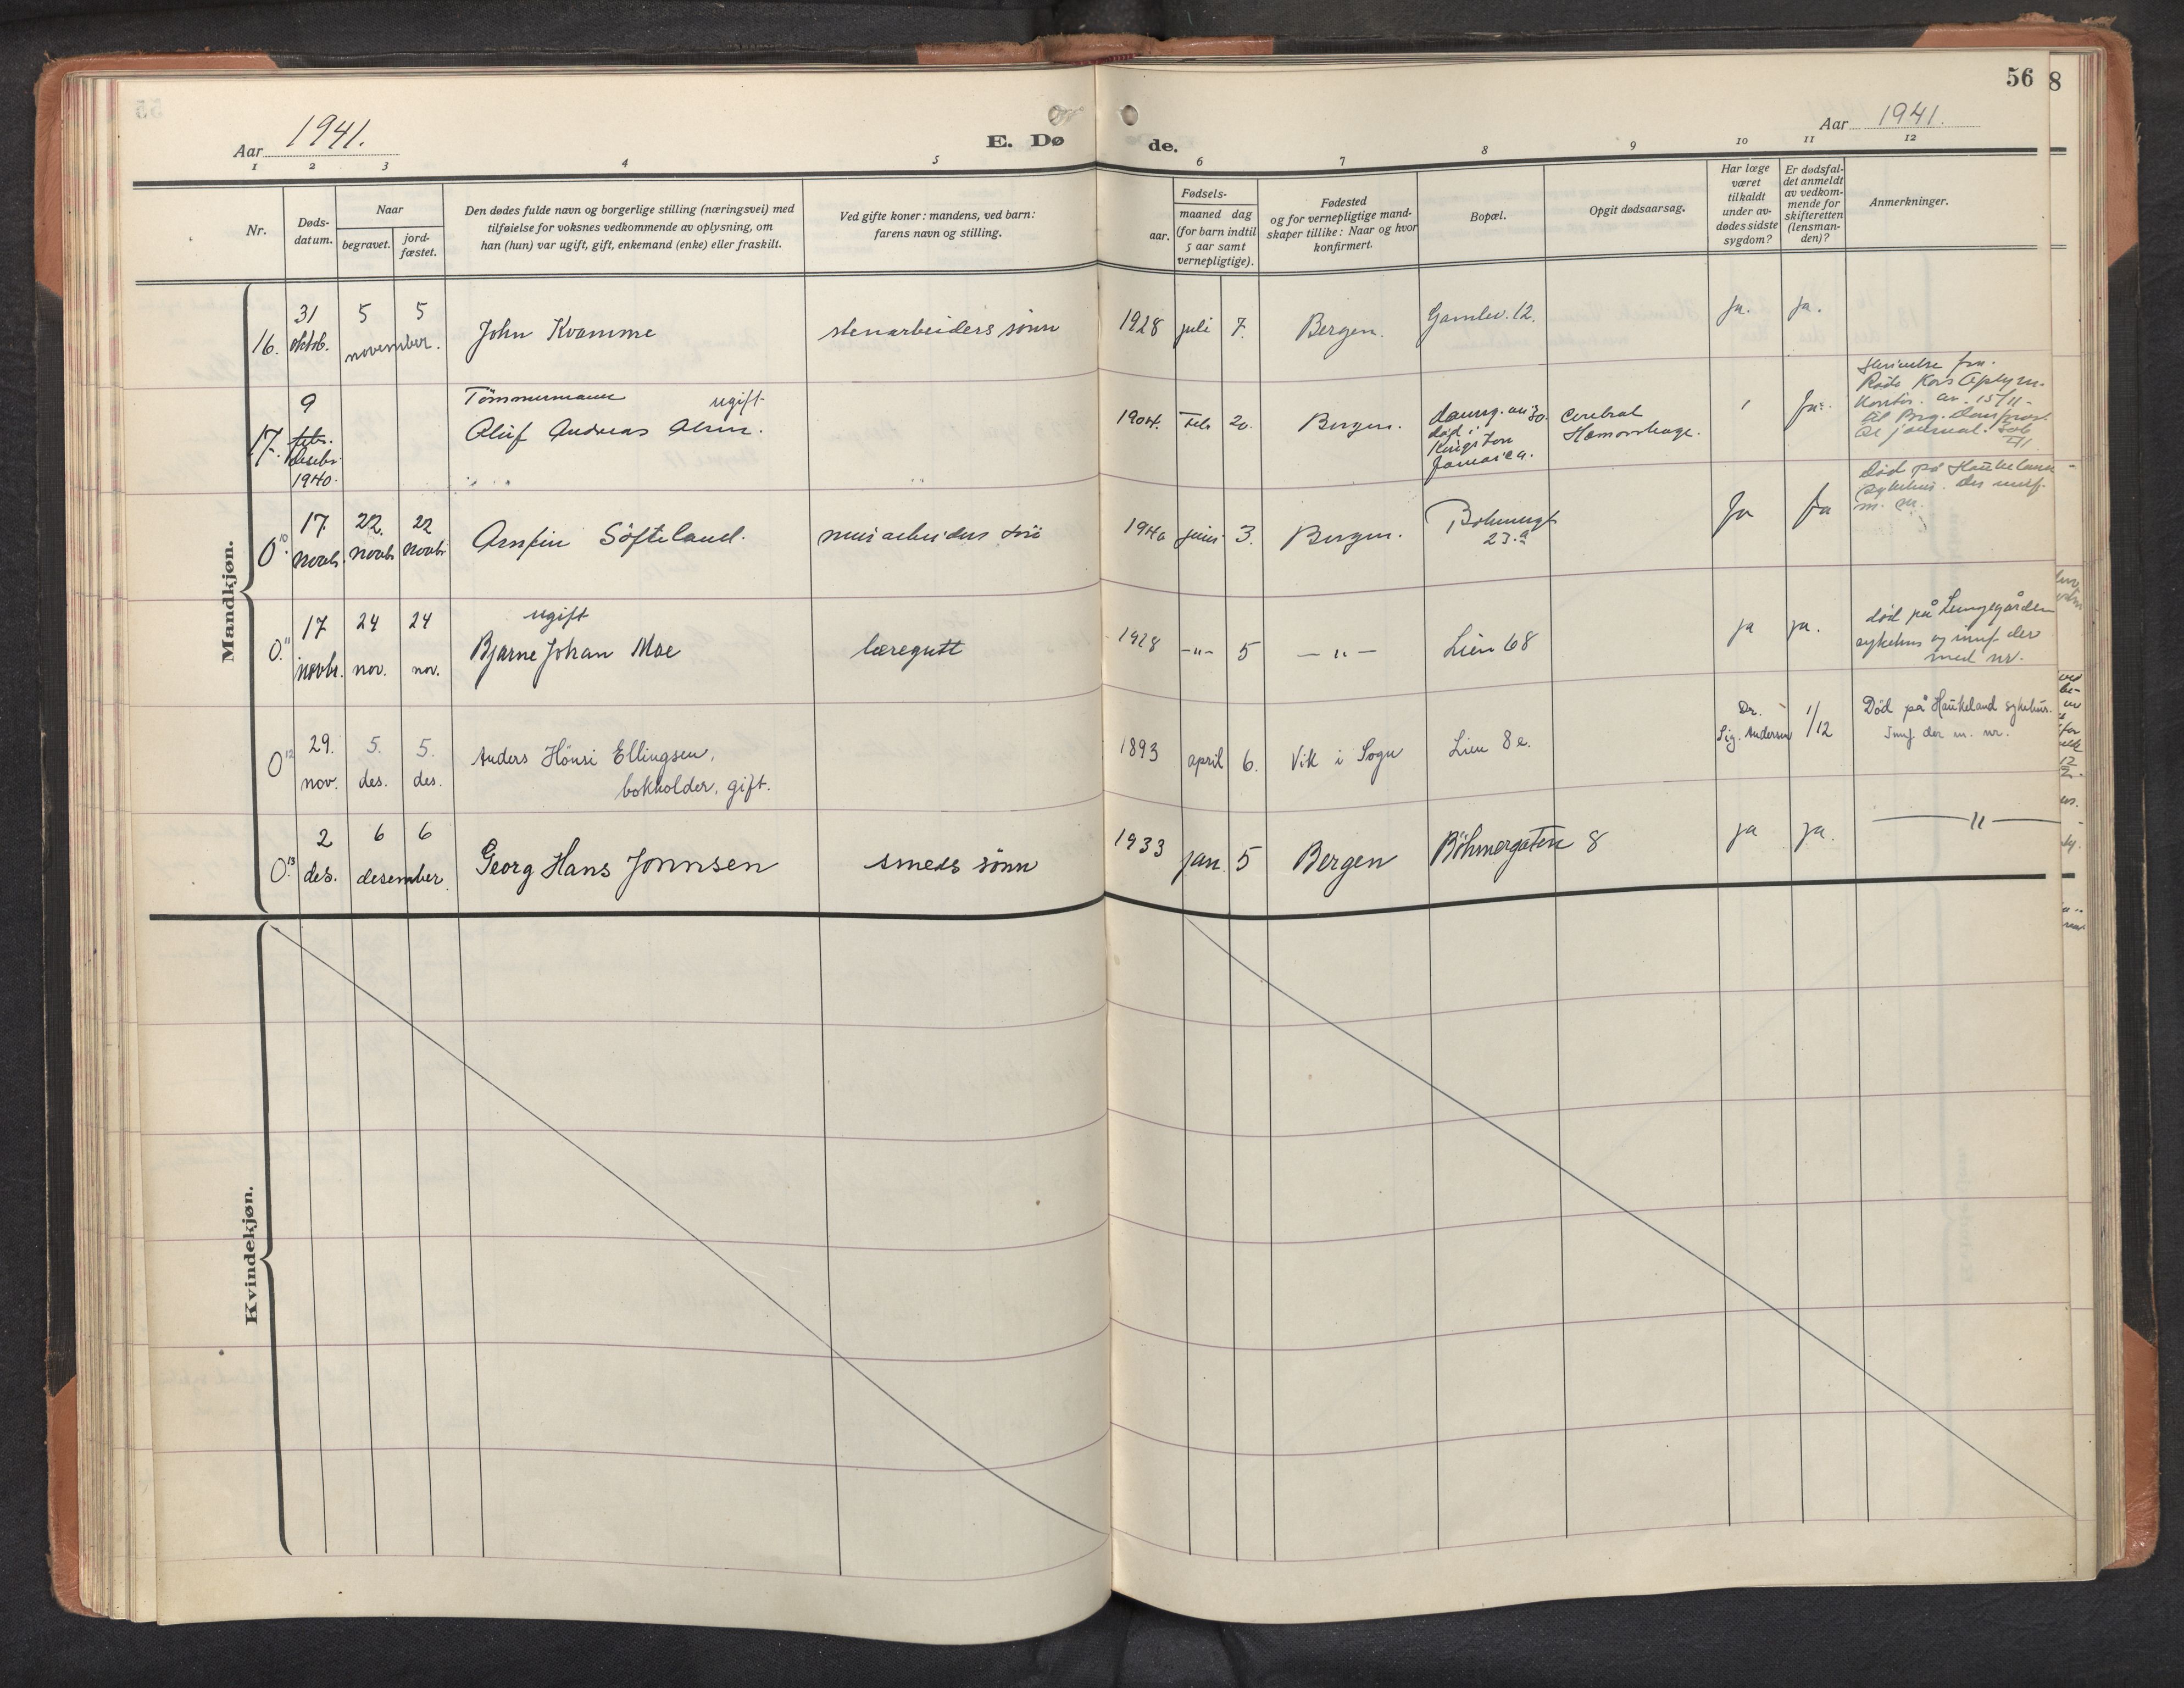 56
8
Aar 1941.
E. Døde.
Aar 1941.
1 2 3 4 5 6 7 8 9 10 11 12
Nr.
Døds-
datum.
Naar
begravet.
jord-
fæstet.
Den dødes fulde navn og borgerlige stilling (næringsvei) med
tilføielse for voksnes vedkommende av oplysning, om
han (hun) var ugift, gift, enkemand (enke) eller fraskilt.
Ved gifte koner: mandens, ved barn:
farens navn og stilling.
Fødsels-
aar.
maaned dag
(for barn indtil
5 aar samt
vernepligtige).
Fødested
og for vernepligtige mand-
skaper tillike: Naar og hvor
konfirmert.
Bopæl.
Opgit dødsaarsag.
Har læge
været
tilkaldt
under av-
dødes sidste
sygdom?
Er dødsfal-
det anmeldt
av vedkom-
mende for
skifteretten
(lensman-
den)?
Anmerkninger.
Mandkjøn.
16. 31 oktob. 5 5 november. John Kvamme stenarbeiders sønn 1928 juli 7. Bergen. Gamlev. 12. Ja. ja.
17. 9 febr. desbr. 1940. Tömmermann ugift
Oluf Andreas 1904. Feb 20. Bergen. død i Kingston Jamaica. Cerebral Hæmorrhage. Ja.
Røde Kors
av 15/11-
O.10 17. novbr. 22. novbr 22 novbr Arnfin Söfteland. 1940 juni 3. Bergen. 23.a Ja Ja
Død på Haukeland
sykehus.
O.11 17 novbr. 24 nov. 24 nov. ugift
Bjarne Johan Moe læregutt 1928 -"- 5 -"- Lien 68 ja ja. død på Lungegården
sykehus og innf. der
med nr.
O.12 29. nov. 5. des. 5. des. Anders Hönsi Ellingsen,
bokholder, gift. 1893 april 6. Vik i Sogn Lien 8e. Dr.
Sig. Andersen 1/12 Død på Haukeland sykehus.
Innf. der m. nr.
O.13 2 des. 6 6 desember Georg Hans Jonnsen smeds sönn 1933 jan. 5 Bergen Böhmergaten 8 ja ja. "
Kvindekjøn.